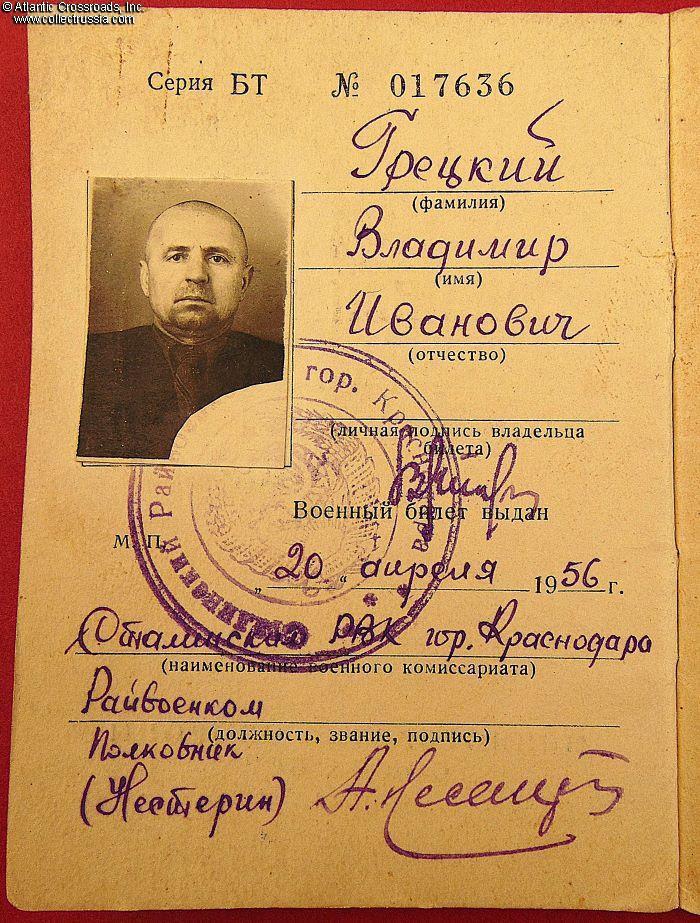 © Atlantic Crossroads, Inc.
www.collectrussia.com
Серия БТ № 017636
Грецкий
(фамилия)
Владимир
(имя)
Иванович
(отчество)
(личная подпись владельца
билета)
Военный билет выдан
М. П.
„ 20 “ апреля 1956 г.
Сталинский РВК гор. Краснодара
(наименование военного комиссариата)
Райвоенком
(должность, звание, подпись)
Полковник
(Нестерин)
гор. Краснодара
Сталинский Рай